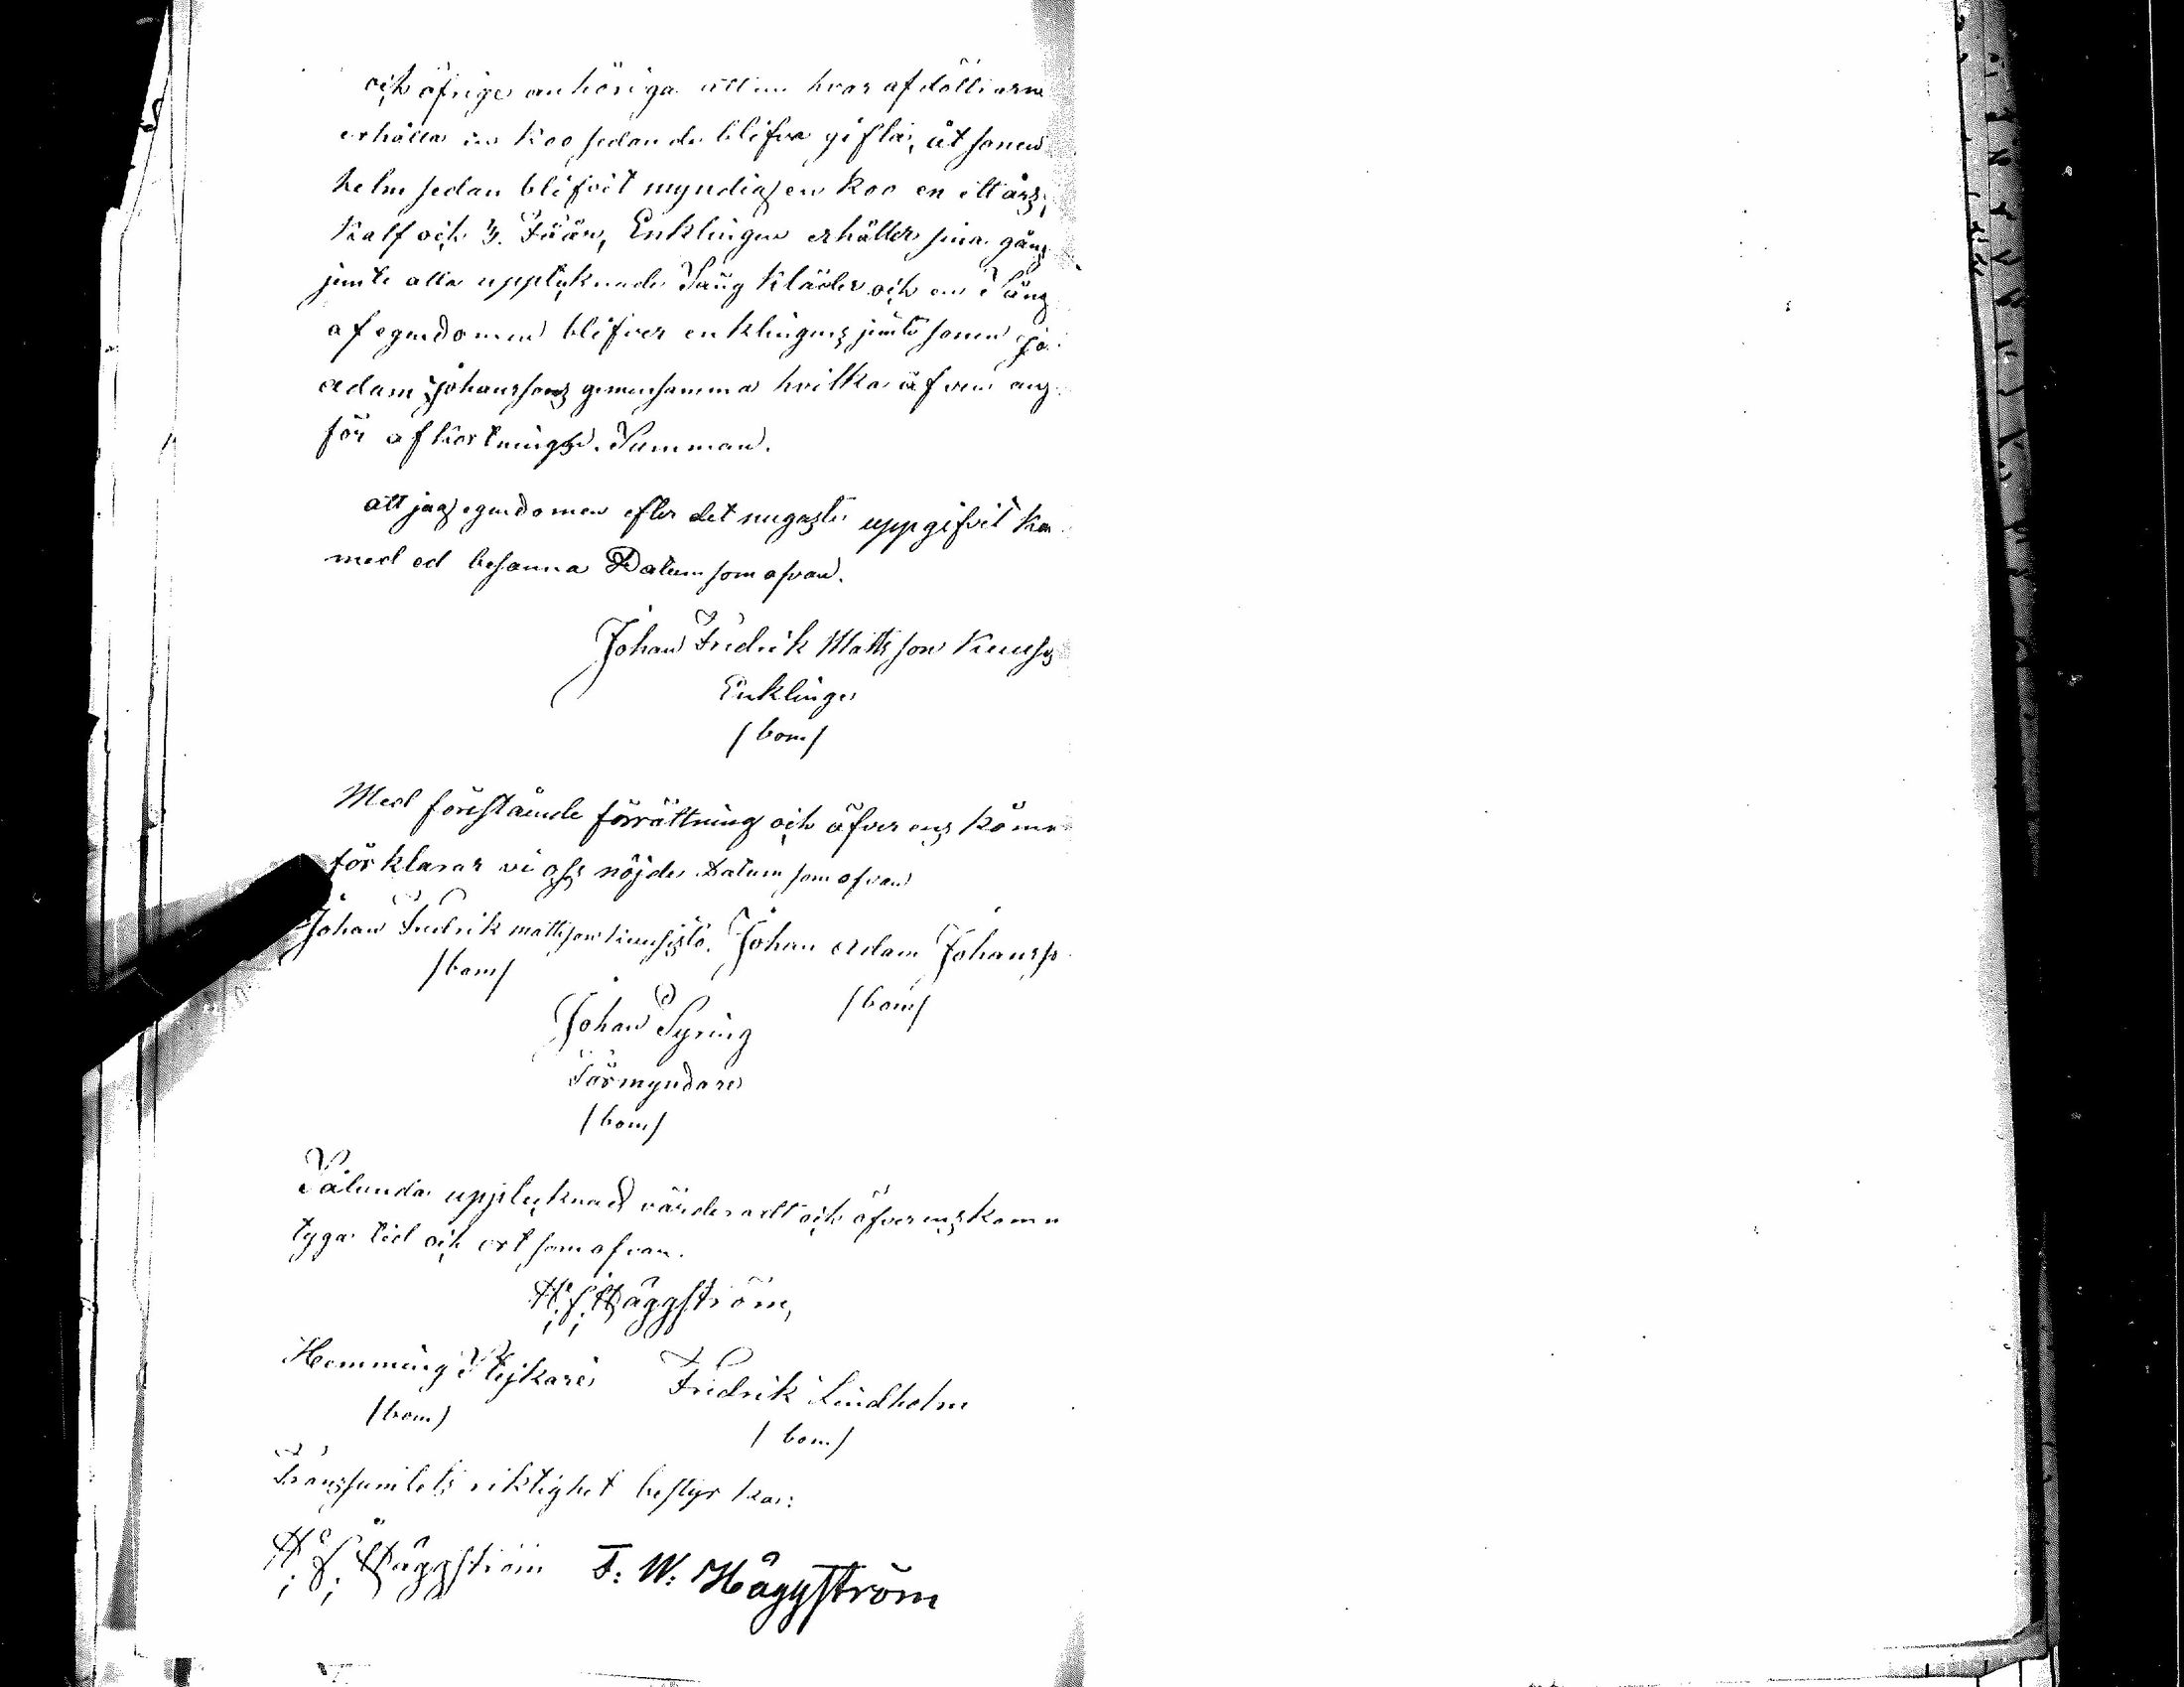 och öfrige anhöriga att en hvar af döttrarne
erhåller en Koo sedan de blifva giftа, åt sonen
helm sedan blifvit myndig en Koo en ett års
Kalf och 3. Fåår, Enklingen erhåller sina gång
jemte alla upptecknade Säng kläder och en Säng
af egendomen blifver enklingens jemte sonen Jo
adam Johanssons gemensamma hvilka äfven
för afkortningen. Summan.
att jag egendomen efter det nogaste uppgifvit kan
med ed besanna Datum som ofvan.
Johan Fredrik Mattsson Kuusis
Enkling
/bom/
Med förestående förrättning och öfverens komm
förklarar vi oss nöjde Datum som ofvan
Johan Fredrik mattsson kuusisto. Johan Adam Johansso
/bom/
/bom/
Johan Syring
Förmyndare
/bom/
Sålunda upptecknad värderadt och öfverenskomm
tyga tid och ort som ofvan.
H: F: Häggström,
Hemming Stejkare Fredrik Lindholm
/bom/ /bom/
Transsumtets riktighet bestyrkar:
H: F: Häggström F: W: Häggström